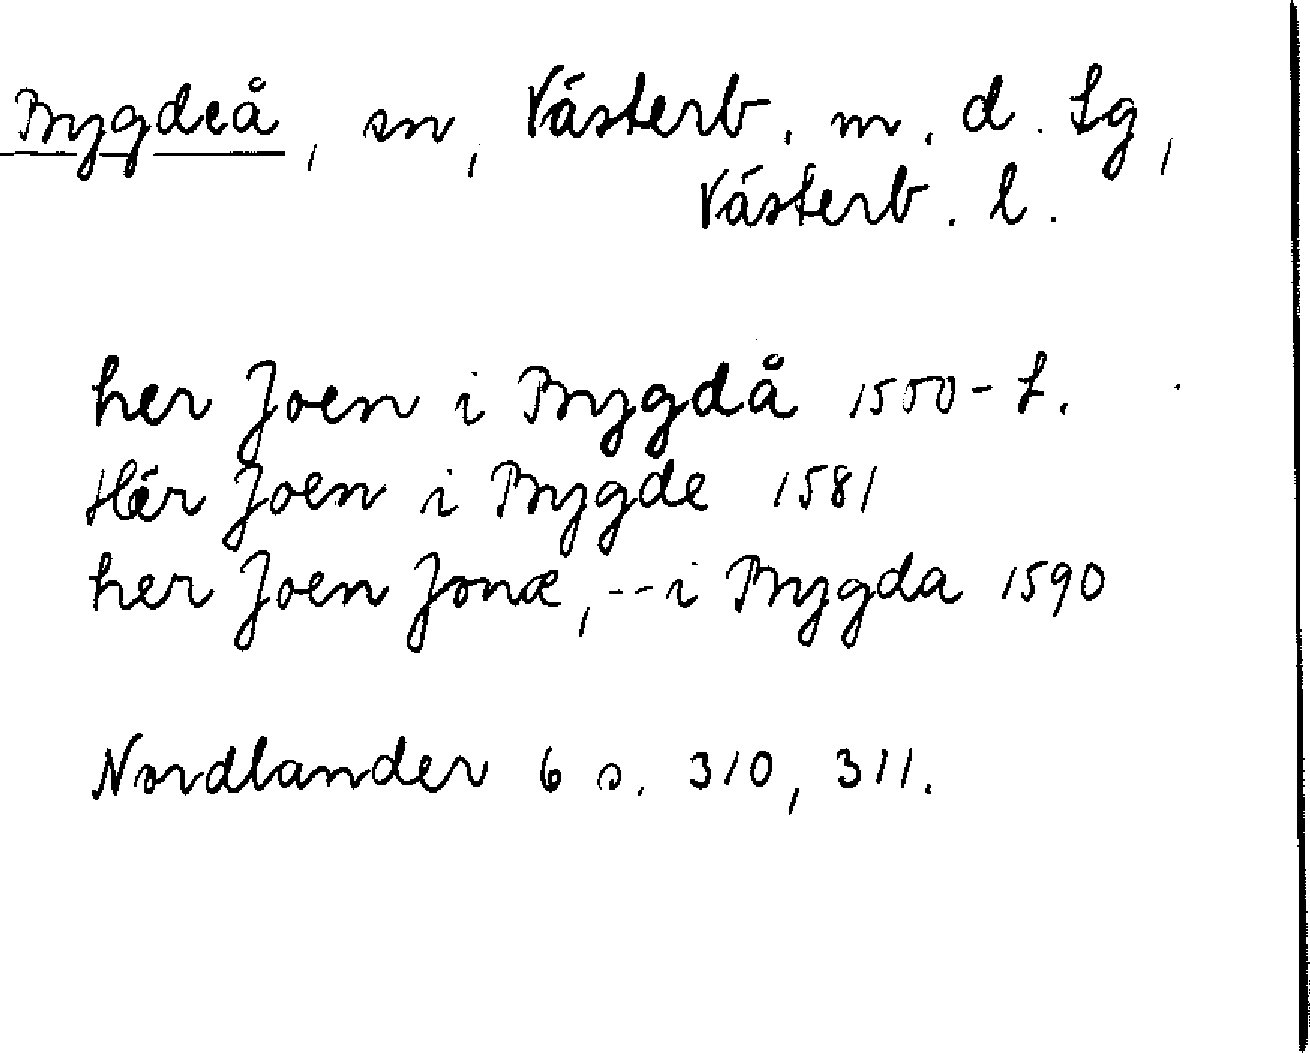 Bygdeå, sn, Västerb. m. d. tg,
Västerb. l.
her Joen i Bygdå 1550-t.
Här Joen i Bygde 1581
her Joen Jonæ, -- i Bygda 1590
Nordlander 6 s. 310, 311.